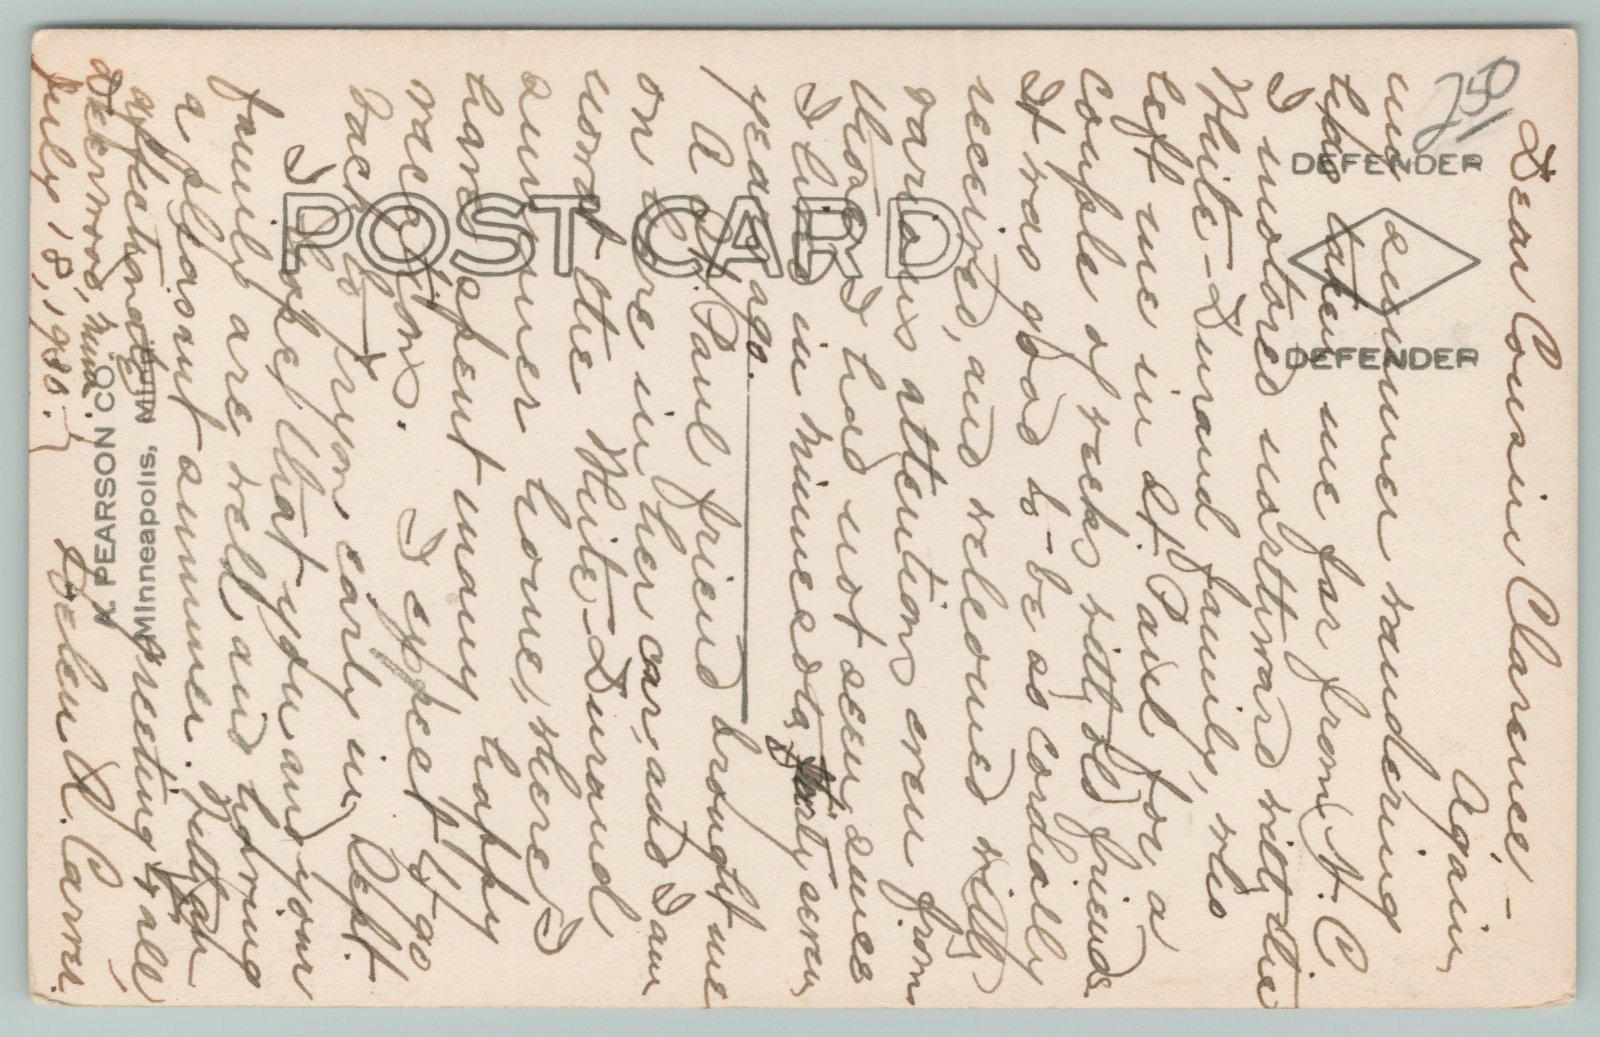 250
DEFENDER
DEFENDER
POST CARD
A. PEARSON CO.
Minneapolis, Minn.
Dear Cousin Clarence -
Again,
my summer wandering
has taken me far from N. C.
I motored northward with the
White-Durand family, who
left me in St. Paul, for a
couple of weeks with old friends.
It was good to be as cordially
received, and welcomed with
various attentions even from
those I had not seen since
I lived in Minnesota, forty seven
years ago.
A St. Paul friend brought me
on here in her car, and I am
now at the White-Durand
summer home, where I
have spent many happy
vacations. I expect to go
back to Tryon early in Sept.
I hope that you and your
family are well and having
a pleasant summer. With
affectionate greeting to all,
Helen R. Carroll.
Deerwood, Minn.
July 18, 1930.